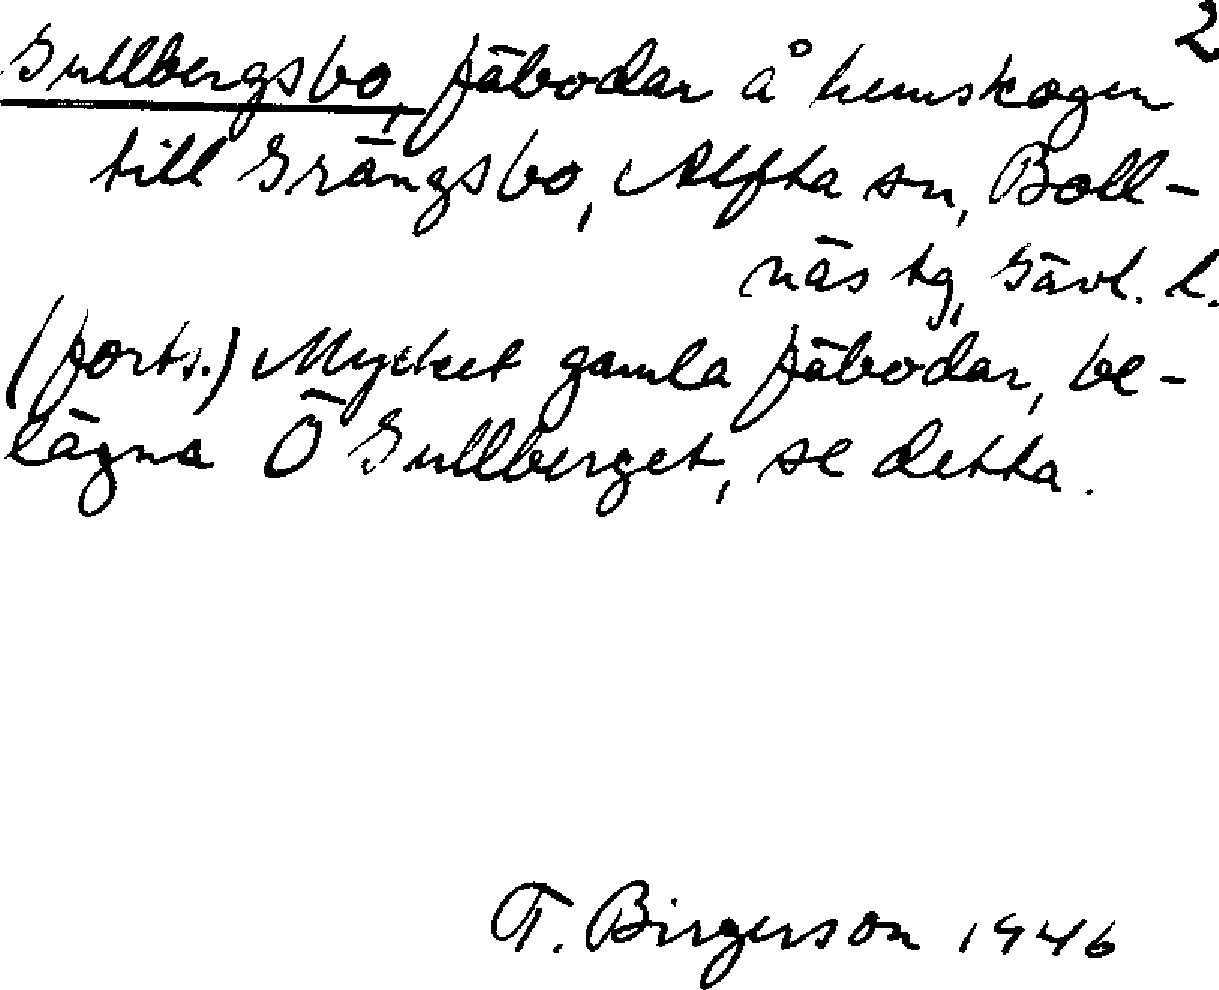 2
Gullbergsbo, fäbodar å hemskogen
till Grängsbo, Alfta sn, Boll-
näs tg, Gävl. l.
(forts.) Mycket gamla fäbodar, be-
lägna Ö Gullberget, se detta.
T. Birgerson 1946